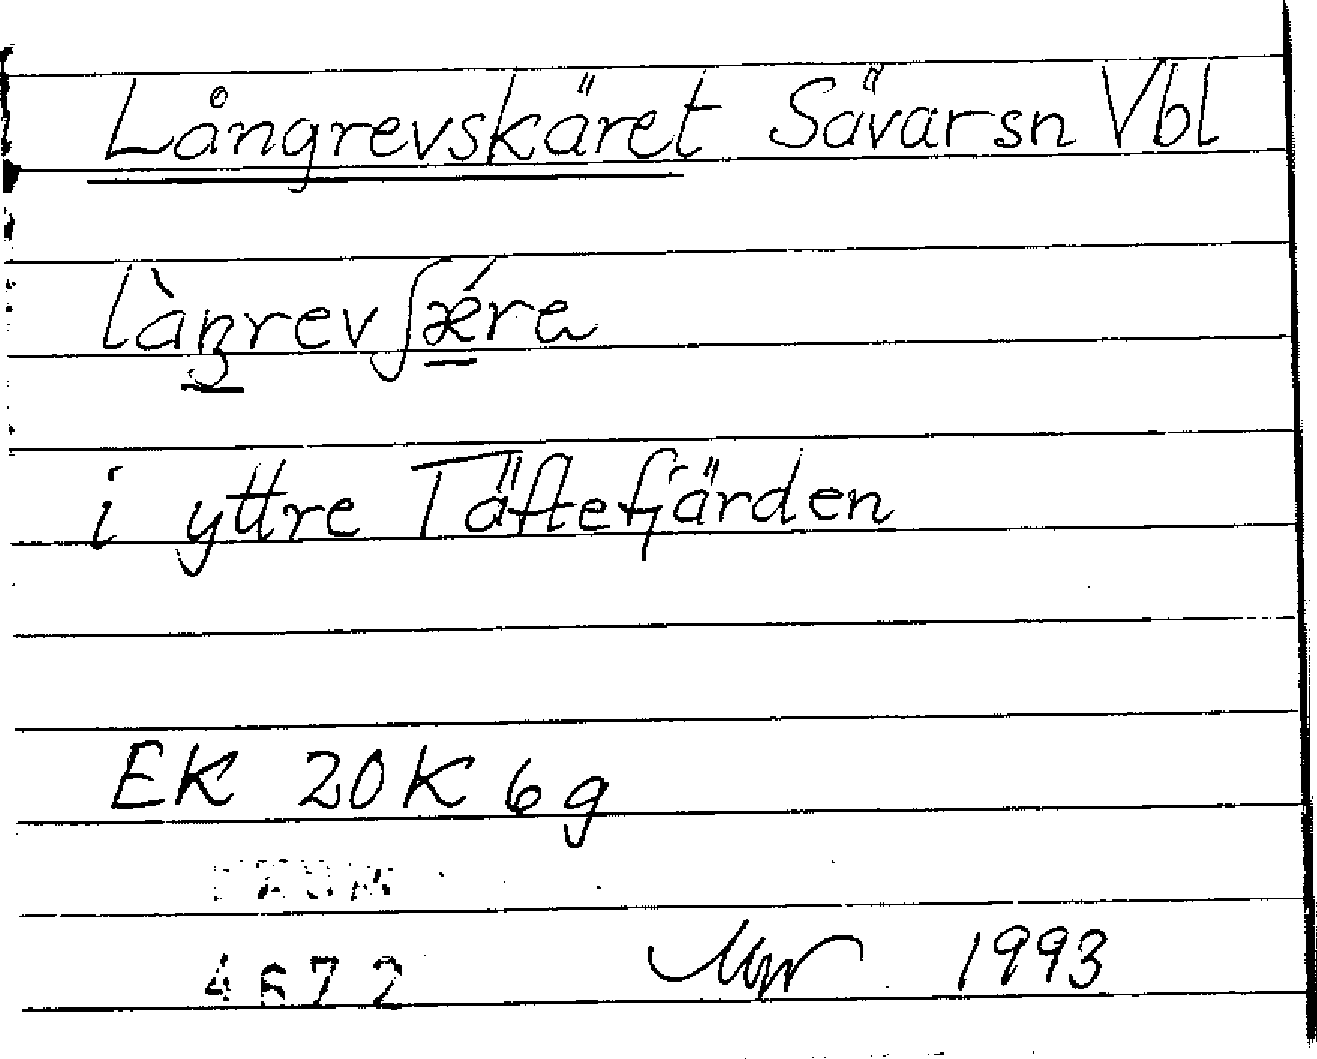 Långrevskäret Sävarsn Vbl
làŋrevʃǽra
i yttre Täftefjärden
EK 20K 6g
4672 1993